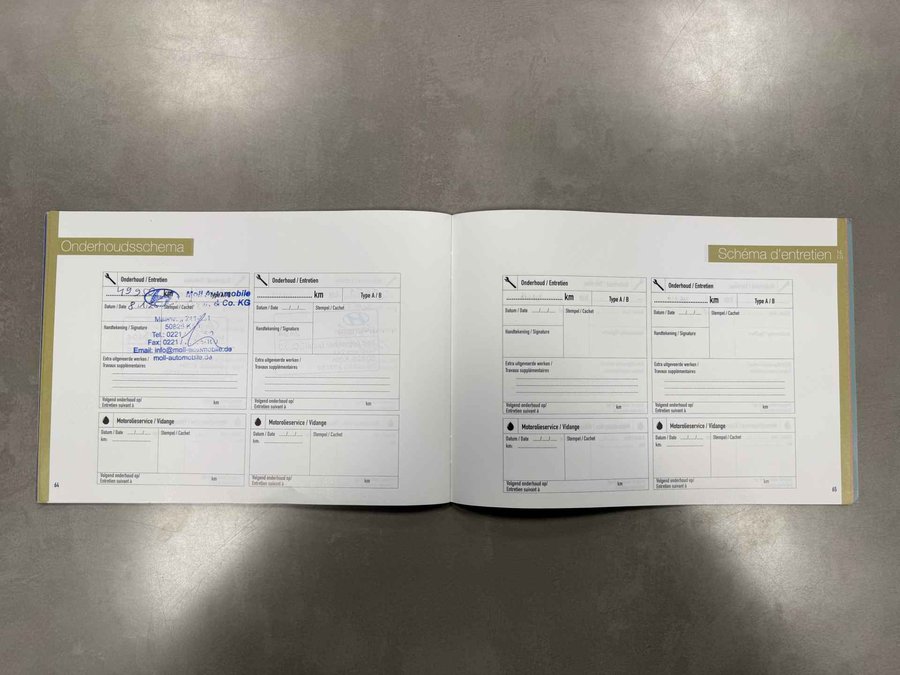 Onderhoudsschema
Onderhoud / Entretien
km
Moll Automobile
& Co. KG
Datum / Date
Stempel / Cachet
Handtekening / Signature
Tel.: 0221
Fax: 0221
Email: info@moll-automobile.de
moll-automobile.de
Extra uitgevoerde werken /
Travaux supplémentaires
Volgend onderhoud op/
Entretien suivant à
km
Motorolieservice / Vidange
Datum / Date __/__/__
Stempel / Cachet
km:
Volgend onderhoud op/
Entretien suivant à
km
Onderhoud / Entretien
km
Type A / B
Datum / Date __/__/__
Stempel / Cachet
Handtekening / Signature
Extra uitgevoerde werken /
Travaux supplémentaires
Volgend onderhoud op/
Entretien suivant à
km
Motorolieservice / Vidange
Datum / Date __/__/__
Stempel / Cachet
km:
Volgend onderhoud op/
Entretien suivant à
km
64
Schéma d'entretien
Onderhoud / Entretien
km
Type A / B
Datum / Date __/__/__
Stempel / Cachet
Handtekening / Signature
Extra uitgevoerde werken /
Travaux supplémentaires
Volgend onderhoud op/
Entretien suivant à
km
Motorolieservice / Vidange
Datum / Date __/__/__
Stempel / Cachet
km:
Volgend onderhoud op/
Entretien suivant à
km
Onderhoud / Entretien
km
Type A / B
Datum / Date __/__/__
Stempel / Cachet
Handtekening / Signature
Extra uitgevoerde werken /
Travaux supplémentaires
Volgend onderhoud op/
Entretien suivant à
km
Motorolieservice / Vidange
Datum / Date __/__/__
Stempel / Cachet
km:
Volgend onderhoud op/
Entretien suivant à
km
65